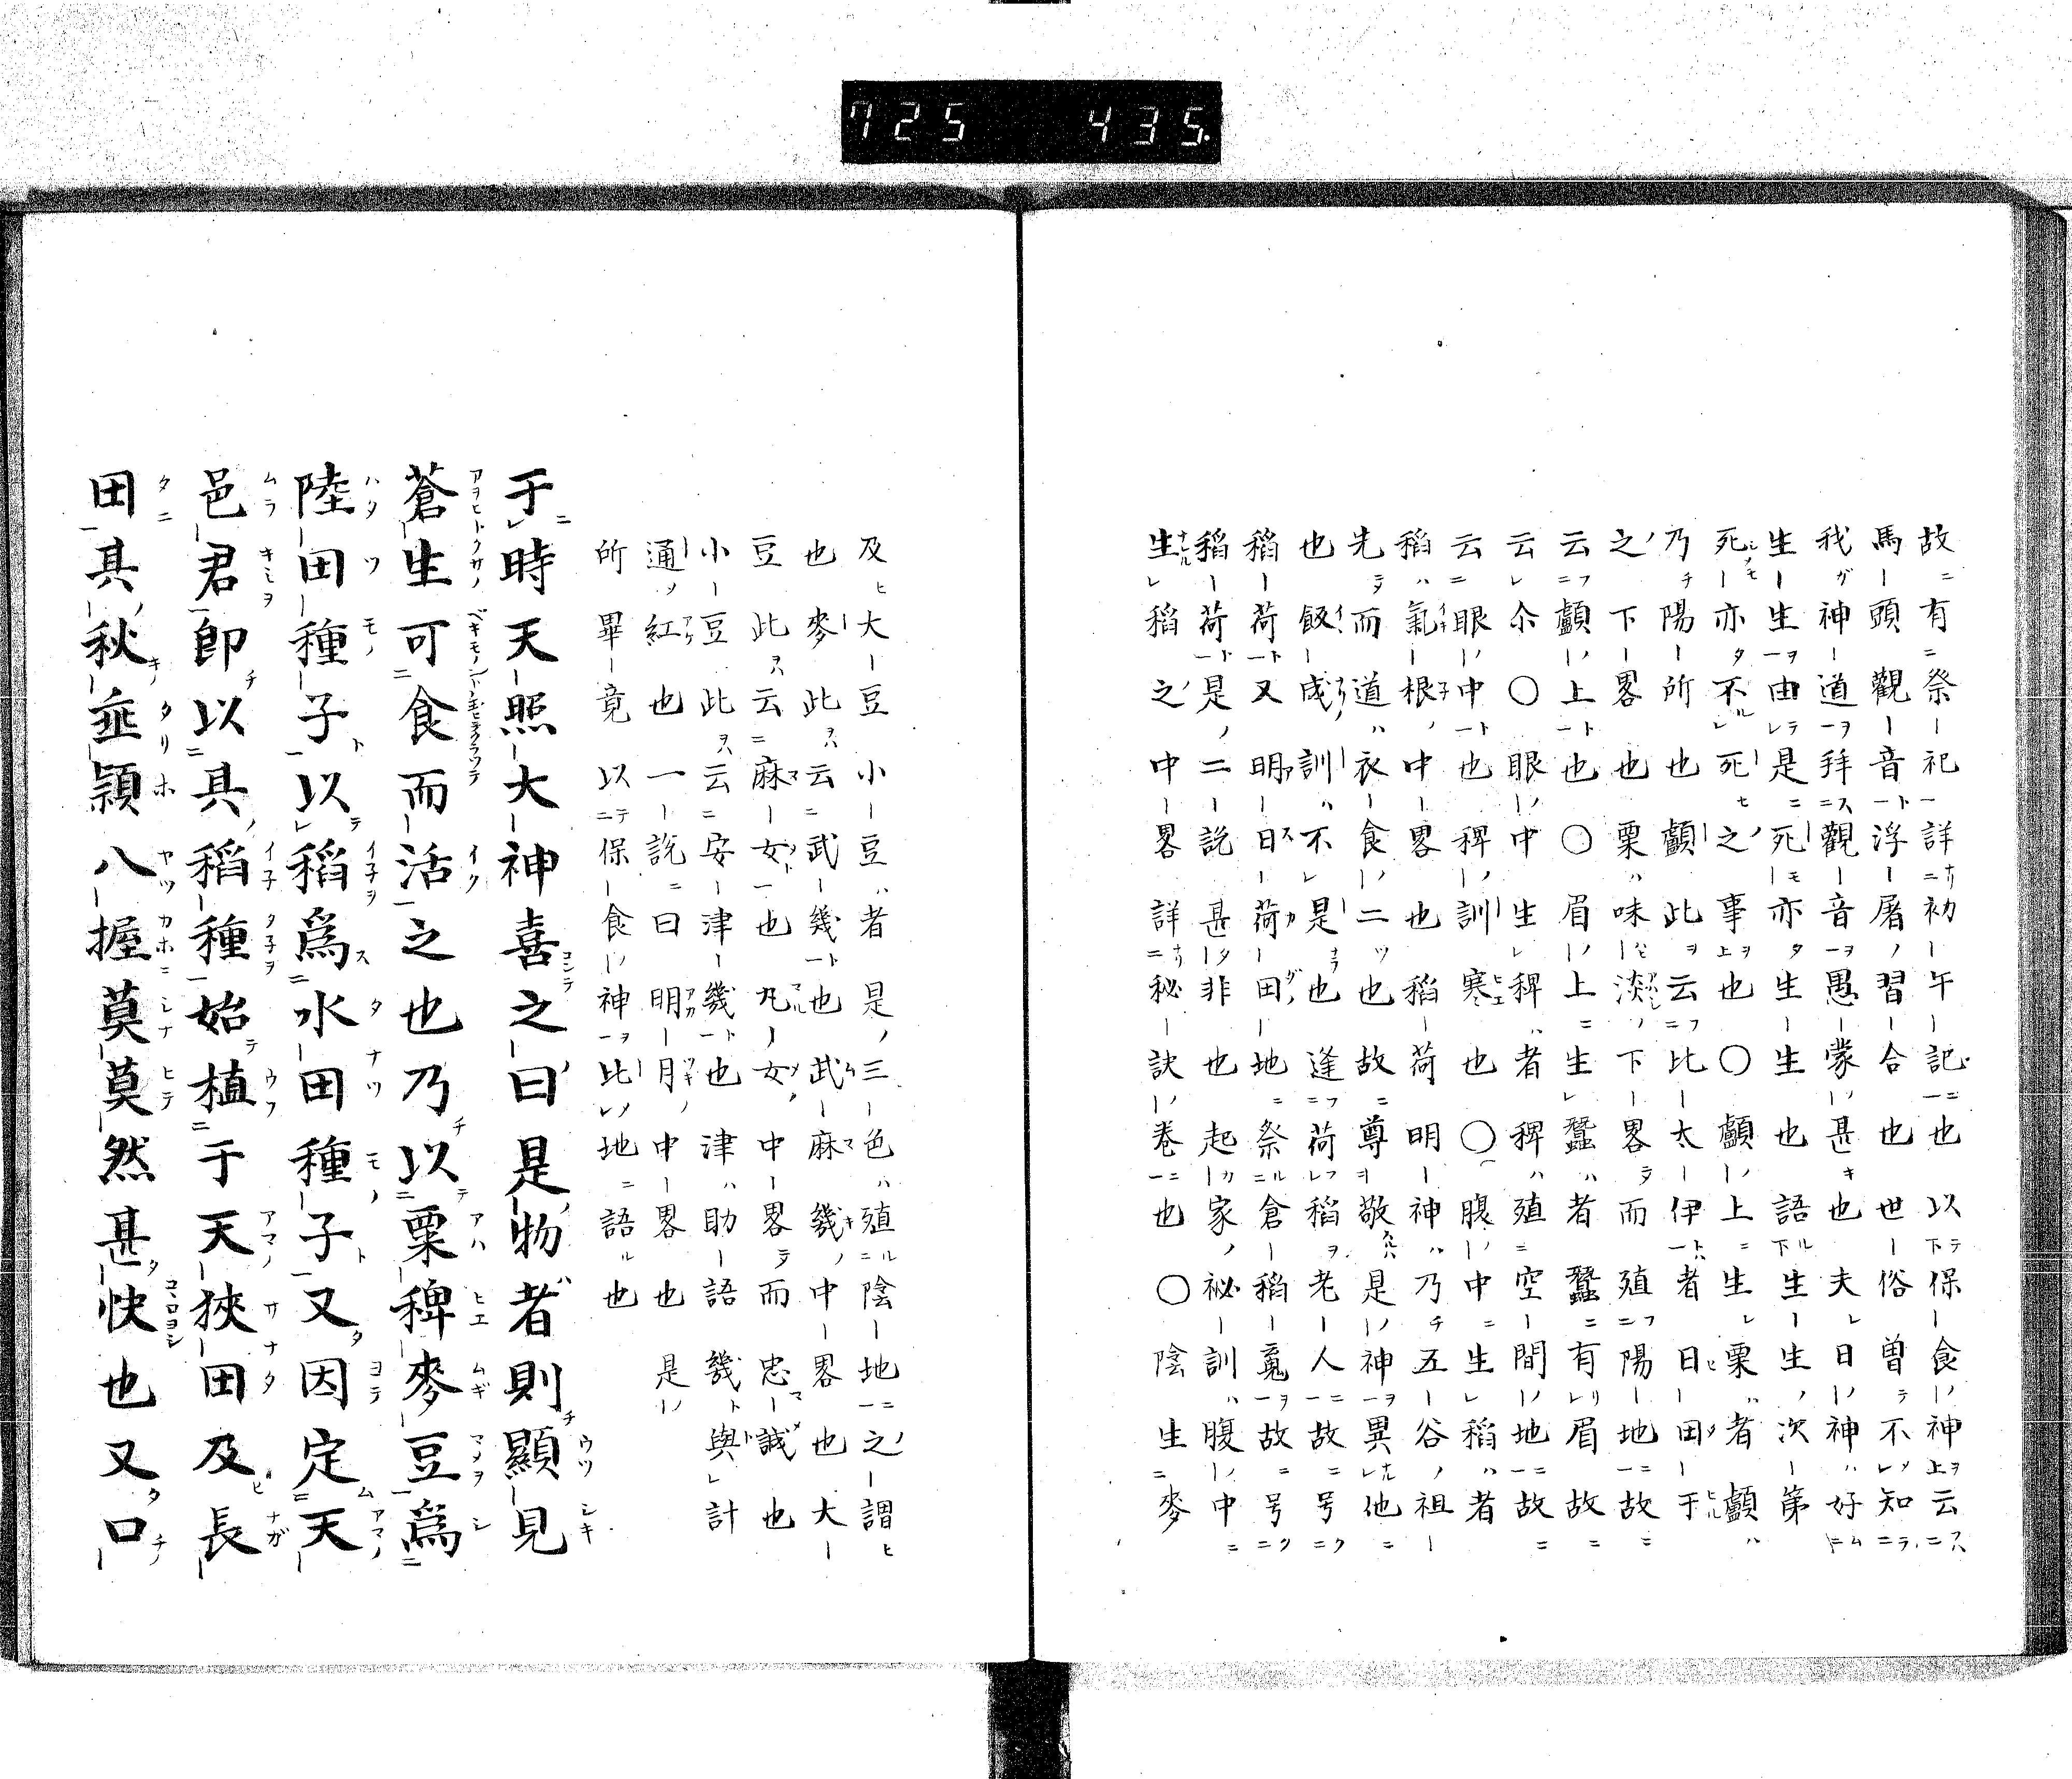 725 435.
故有祭祀詳初午記也以保食神云
馬頭觀音浮屠習合也世俗曽不知
我神道拜觀音愚蒙甚也夫日神好
生生由是死亦生生也語生生次第
死亦不死之事也〇顱上生粟者顱
乃陽所也顱此云比太伊者日田于
之下畧也粟味淡下畧而殖陽地故
云顱上也〇眉上生蠶者蠶有眉故
云尒〇眼中生稗者稗殖空間地故
云眼中也稗訓寒也〇腹中生稻者
稻氣根中畧也稻荷明神乃五谷祖
先而道衣食二也故尊敬是神異他
也飯成訓不是也逢荷稻老人故号
稻荷又明日荷田地祭倉稻䰟故号
稻荷是二說甚非也起家祕訓腹中
生稻之中畧詳秘訣卷也〇陰生麥
及大豆小豆者是三色殖陰地之謂
也麥此云武幾也武麻幾中畧也大
豆此云麻女也丸女中畧而忠誠也
小豆此云安津幾也津助語幾與計
通紅也一說曰明月中畧也是
所畢竟以保食神比地語也
于時天照大神喜之曰是物者則顯見
蒼生可食而活之也乃以粟稗麥豆爲
陸田種子以稻爲水田種子又因定天
邑君卽以其稻種始植于天狹田及長
田其秋垂頴八握莫莫然甚快也又口